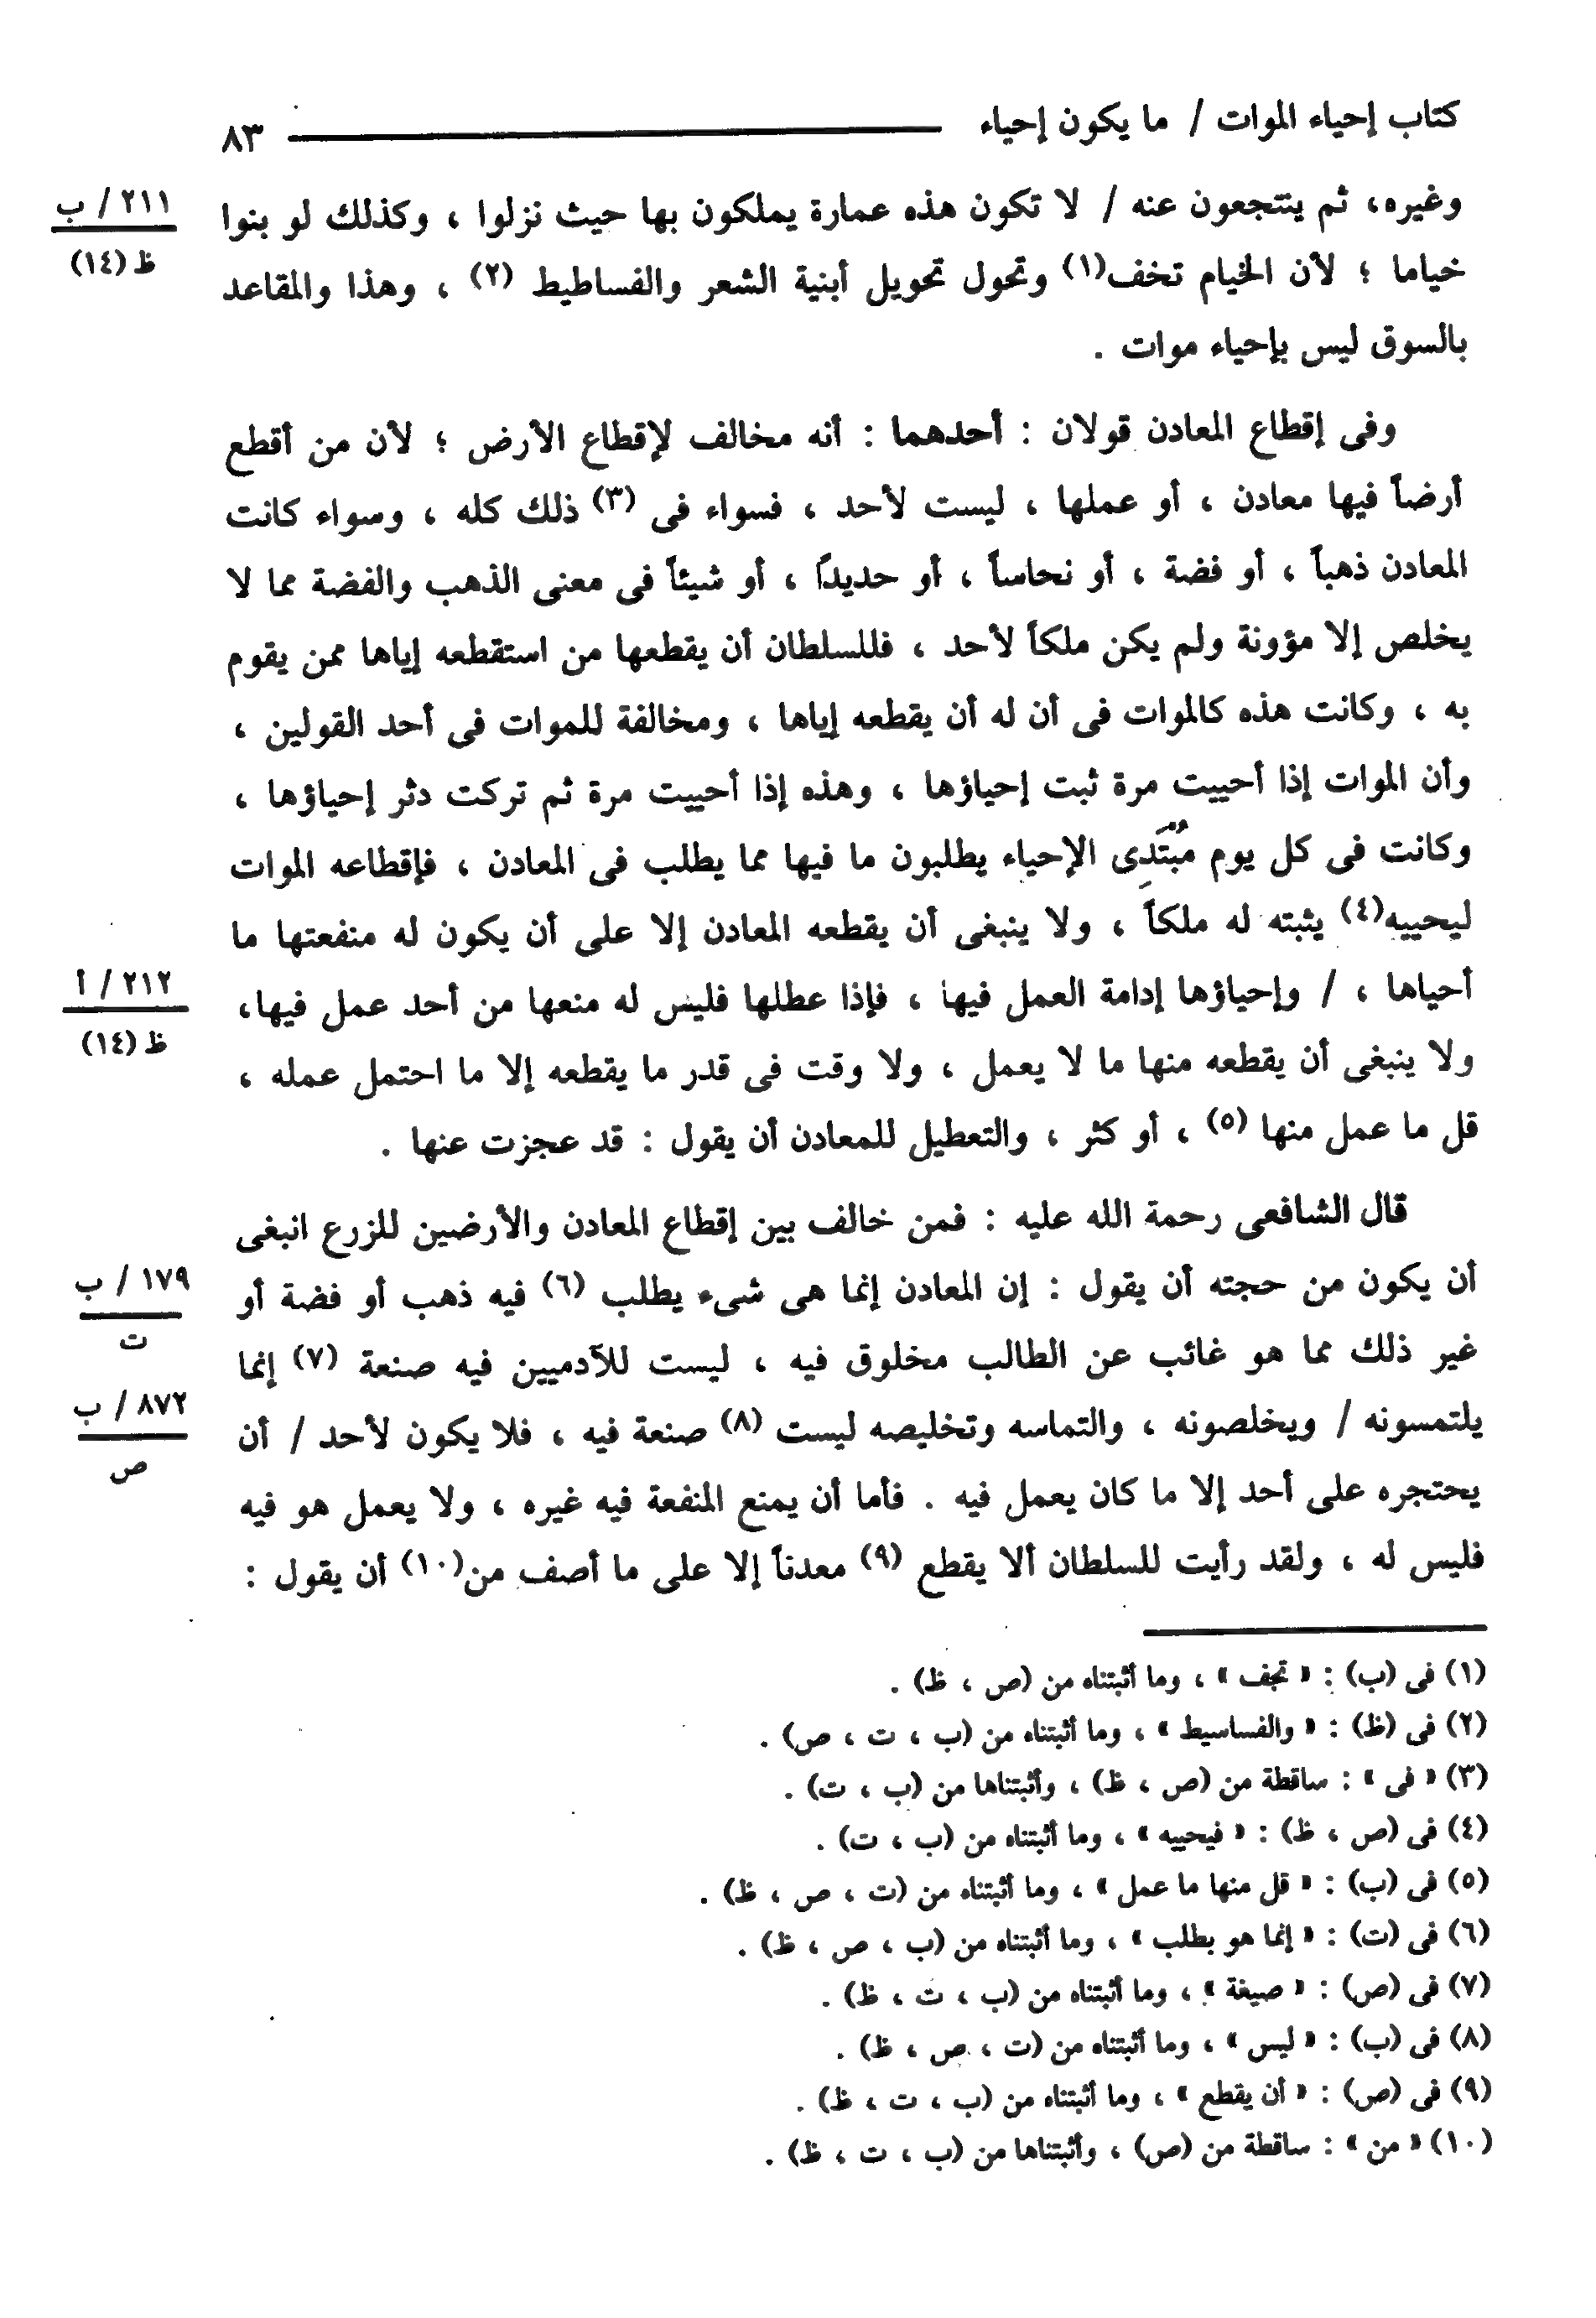 كتاب إحياء الموات / ما يكون إحياء ٨٣
وغيره، ثم ينتجعون عنه / لا تكون هذه عمارة يملكون بها حيث نزلوا ، وكذلك لو بنوا
٢١١ / ب
ظ (١٤)
خياما ؛ لأن الخيام تخف(١) وتحول تحويل أبنية الشعر والفساطيط (٢) ، وهذا والمقاعد
بالسوق ليس بإحياء موات .
وفى إقطاع المعادن قولان : أحدهما : أنه مخالف لإقطاع الأرض ؛ لأن من أقطع
أرضاً فيها معادن ، أو عملها ، ليست لأحد ، فسواء فى (٣) ذلك كله ، وسواء كانت
المعادن ذهباً ، أو فضة ، أو نحاساً ، أو حديداً ، أو شيئاً فى معنى الذهب والفضة مما لا
يخلص إلا مؤونة ولم يكن ملكاً لأحد ، فللسلطان أن يقطعها من استقطعه إياها ممن يقوم
به ، وكانت هذه كالموات فى أن له أن يقطعه إياها ، ومخالفة للموات فى أحد القولين ،
وأن الموات إذا أحييت مرة ثبت إحياؤها ، وهذه إذا أحييت مرة ثم تركت دثر إحياؤها ،
وكانت فى كل يوم مُبْتَدِى الإحياء يطلبون ما فيها مما يطلب فى المعادن ، فإقطاعه الموات
ليحييه(٤) يثبته له ملكاً ، ولا ينبغى أن يقطعه المعادن إلا على أن يكون له منفعتها ما
أحياها ، / وإحياؤها إدامة العمل فيها ، فإذا عطلها فليس له منعها من أحد عمل فيها،
٢١٢ / أ
ظ (١٤)
ولا ينبغى أن يقطعه منها ما لا يعمل ، ولا وقت فى قدر ما يقطعه إلا ما احتمل عمله ،
قل ما عمل منها (٥) ، أو كثر ، والتعطيل للمعادن أن يقول : قد عجزت عنها .
قال الشافعى رحمة الله عليه : فمن خالف بين إقطاع المعادن والأرضين للزرع انبغى
أن يكون من حجته أن يقول : إن المعادن إنما هى شىء يطلب (٦) فيه ذهب أو فضة أو
١٧٩ / ب
ت
غير ذلك مما هو غائب عن الطالب مخلوق فيه ، ليست للآدميين فيه صنعة (٧) إنما
يلتمسونه / ويخلصونه ، والتماسه وتخليصه ليست (٨) صنعة فيه ، فلا يكون لأحد / أن
٨٧٢ / ب
ص
يحتجره على أحد إلا ما كان يعمل فيه . فأما أن يمنع المنفعة فيه غيره ، ولا يعمل هو فيه
فليس له ، ولقد رأيت للسلطان ألا يقطع (٩) معدناً إلا على ما أصف من(١٠) أن يقول :
(١) فى (ب) : « تجف » ، وما أثبتناه من (ص ، ظ) .
(٢) فى (ظ) : « والفساسيط » ، وما أثبتناه من (ب ، ت ، ص) .
(٣) « فى » : ساقطة من (ص ، ظ) ، وأثبتناها من (ب ، ت) .
(٤) فى (ص ، ظ) : « فيحييه » ، وما أثبتناه من (ب ، ت) .
(٥) فى (ب) : « قل منها ما عمل » ، وما أثبتناه من (ت ، ص ، ظ) .
(٦) فى (ت) : « إنما هو بطلب » ، وما أثبتناه من (ب ، ص ، ظ) .
(٧) فى (ص) : « صيغة » ، وما أثبتناه من (ب ، ت ، ظ) .
(٨) فى (ب) : « ليس » ، وما أثبتناه من (ت ، ص ، ظ) .
(٩) فى (ص) : « أن يقطع » ، وما أثبتناه من (ب ، ت ، ظ) .
(١٠) « من » : ساقطة من (ص) ، وأثبتناها من (ب ، ت ، ظ) .